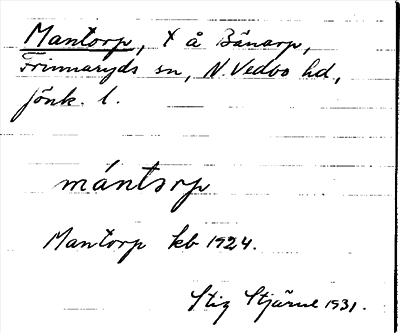 Mantorp, t å Bänarp,
Frinnaryds sn, N. Vedbo hd,
Jönk. l.
mántorp
Mantorp kb 1924.
Stig Stjärne 1931.